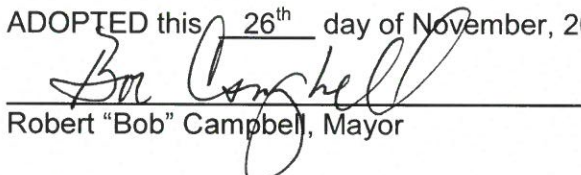 ADOPTED this 26th day of November, 20
Bob Campbell
Robert "Bob" Campbell, Mayor